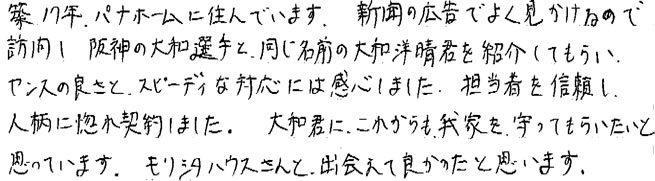 築17年、パナホームに住んでいます。 新聞の広告でよく見かけるので
訪問し 阪神の大和選手と、同じ名前の大和洋晴君を紹介してもらい、
センスの良さと、スピーディな対応には感心しました。担当者を信頼し、
人柄に惚れ契約しました。 大和君に、これからも、我家を、守ってもらいたいと
思っています。 モリシタハウスさんと、出会えて良かったと思います。